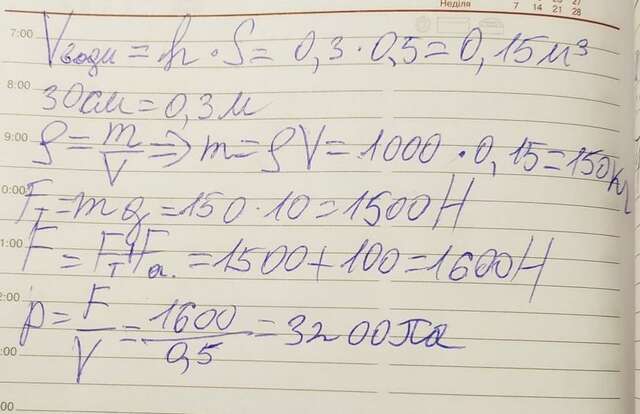 Неділя 7 14 21 28
7:00 Vводи = h · S = 0,3 · 0,5 = 0,15 м³
8:00 30см = 0,3 м
9:00 ρ = m/V => m = ρV = 1000 · 0,15 = 150кг
0:00 Fт = mg = 150 · 10 = 1500 Н
1:00 F = Fт + Fа. = 1500 + 100 = 1600 Н
2:00 p = F/V = 1600/0,5 = 3200 Па
:00
:00